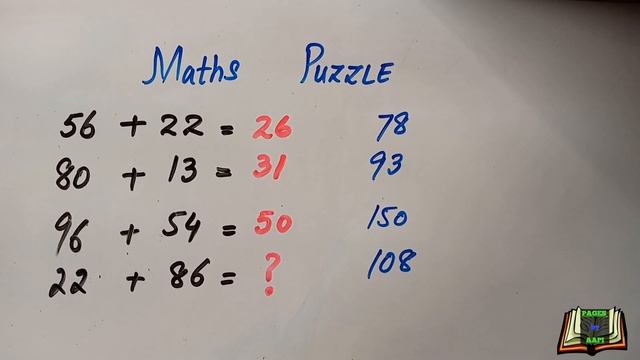 Maths Puzzle
56 + 22 = 26 78
80 + 13 = 31 93
96 + 54 = 50 150
22 + 86 = ? 108
PAGES
BY
AAPI